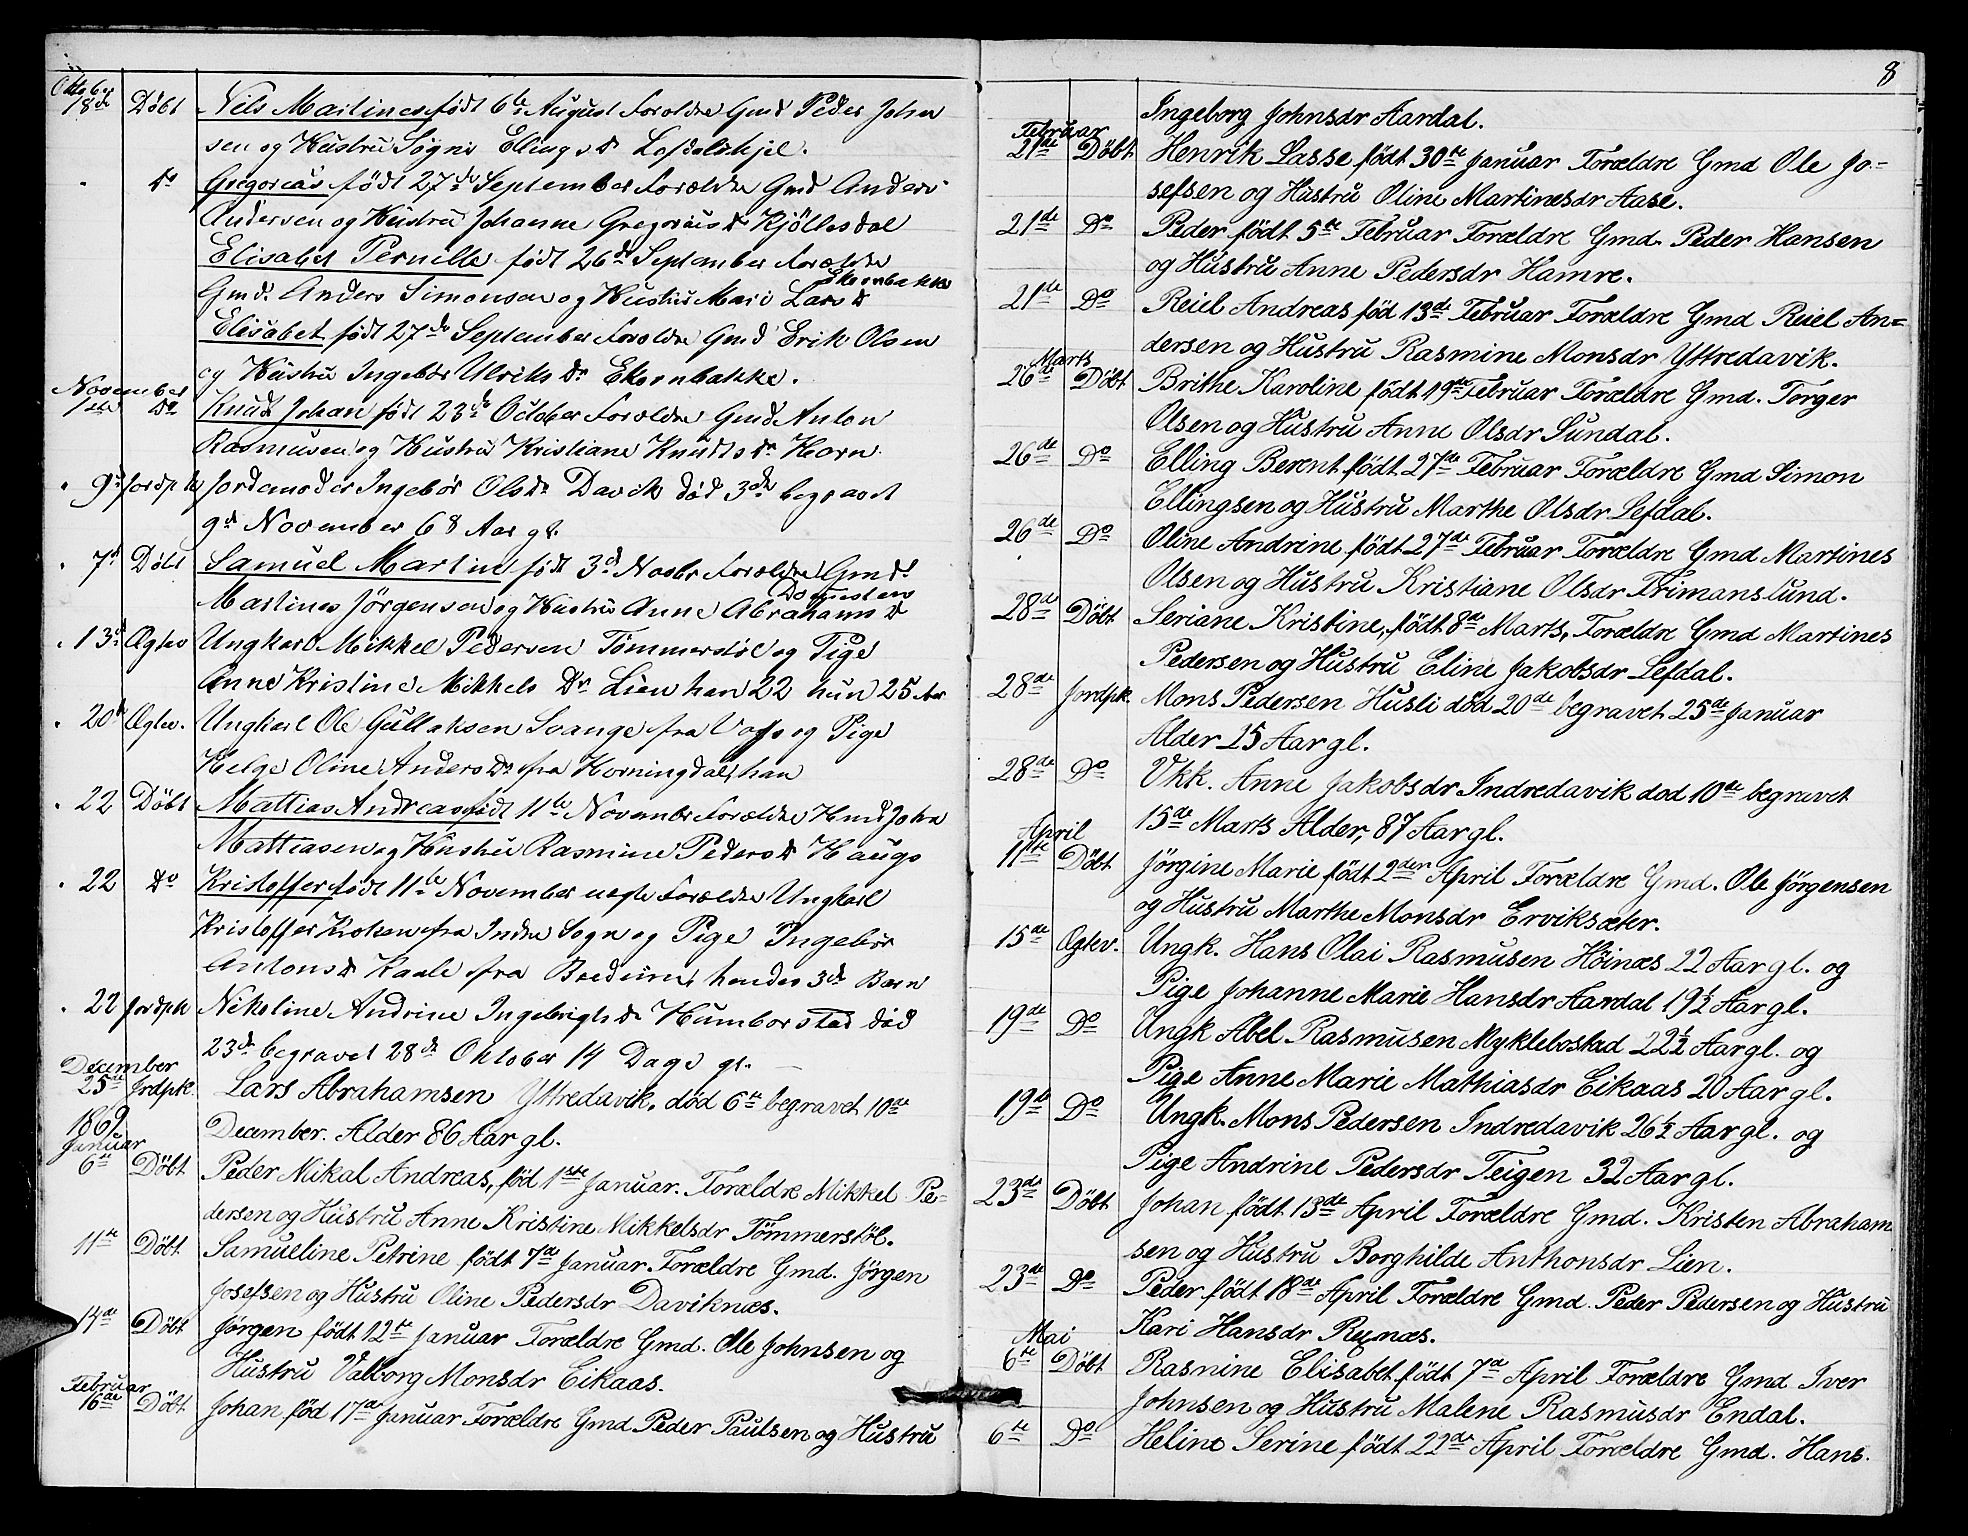 Oktober
18de Døbt Nils Martines født 6te August Forældre Gmd Peder John
sen og Hustru Søgni Ellings Dr Lefdalskjel.
" Do Gregorius født 27de September Forældre Gmd Anders
Andersen og Hustru Johanne Gregorius Dr Kjöllesdal
Elisabet Pernille født 26de September Forældre
Ekornbakke
Gmd. Anders Simonsen og Hustru Mari Lars Dr
Elisabet født 27de September Forældre Gmd Erik Olsen
og Hustru Ingebor Ulriks Dr Ekornbakke.
November
1ste Do Knud Johan født 23de October Forældre Gmd Anton
Rasmusen og Hustru Kristiane Knudts Dr Horn
" 9d Jordpk Jordemoder Ingebör Ols Dr Davik død 3de begravet
9d November 68 Aar gl.
" 7d Døbt Samuel Martin født 3d Novbr Forældre Gmd.
Domesten
Martines Jörgensen og Hustru Anne Abrahams Dr
" 13d Ægtev Ungkarl Mikkel Pedersen Tömmerstöl og Pige
Anne Kristine Mikkels Dr Lien han 22 hun 25 Aar
" 20de Ægtev. Ungkarl Ole Gullaksen Svange fra Voss og Pige
Helge Oline Anders Dr fra Horningdal, han
" 22 Døbt Mattias Andreas født 11te November Forældre Hmd John
Mattiasen og Hustru Rasmine Peders Dr Haugs
" 22 Do Kristoffer født 11te November uegte Forældre Ungkarl
Kristoffer Kroken fra Indre Sogn og Pige Ingebör
Antons Dr Kaale fra Bredeim, hendes 3de Barn
" 22 Jordpk Nikoline Andrine Ingebrigts Dr Humborstad död
23de begravet 28de Oktober 14 Dage gl.
December
25de Jrdpk. Lars Abrahamsen Yttredavik. død 6te begravet 10de
December. Alder 86 Aar gl.
1869
Januar
6te Döbt Peder Mikal Andreas, fød 1ste Januar. Forældre Mikkel Pe-
dersen og Hustru Anne Kristine Mikkelsdr Tömmerstöl.
11te Döbt Samueline Petrine født 7de Januar. Forældre Gmd. Jörgen
Josefsen og Hustru Oline Pedersdr Daviknæs.
14de Döbt Jørgen født 12te Januar Forældre Gmd. Ole Johnsen og
Hustru Valborg Monsdr Eikaas.
Februar
16de Döbt. Johan fød 17de Januar Forældre Gmd Peder Paulsen og Hustru
8
Ingeborg Johnsdr Aardal.
Februar
21de Döbt Henrik Lasse født 30te Januar Forældre Gmd Ole Jo-
sefsen og Hustru Oline Martinesdr Aase.
21de Do Peder født 5te Februar Forældre Gmd. Peder Hansen
og Hustru Anne Pedersdr Hamre.
21de Do Reiel Andreas fød 13de Februar Forældre Gmd Reiel An=
dersen og Hustru Rasmine Monsdr Yttredavik.
Marts
26de Döbt Brithe Karoline født 19de Februar Forældre Gmd. Torger
Olsen og Hustru Anne Olsdr Sundal.
26de Do Elling Berent født 27de Februar Forældre Gmd Simon
Ellingsen og Hustru Marthe Olsdr Lefdal.
26de Do Oline Andrine født 27de Februar Forældre Gmd Martines
Olsen og Hustru Kristiane Olsdr Frimanslund.
28de Döbt Seriane Kristine, født 8de Marts, Forældre Gmd Martines
Pedersen og Hustru Eline Jakobsdr Lefdal.
28de Jordpk. Mons Pedersen Husli död 20de begravet 25de Januar
Alder 15 Aar gl.
28de Do Vkk. Anne Jakobsdr Indredavik död 10de begravet
15de Marts Alder, 87 Aar gl.
April
11te Döbt Jörgine Marie født 2den April Forældre Gmd. Ole Jörgensen
og Hustru Marthe Monsdr Erviksæter.
15de Ægtev. Ungk. Hans Olai Rasmusen Höinæs 22 Aar gl. og
Pige Johanne Marie Hansdr Aardal 19½ Aar gl.
19de Do Ungk Abel Rasmusen Myklebostad 22½ Aar gl. og
Pige Anne Marie Mathiasdr Eikaas 20 Aar gl.
19de Do Ungk. Mons Pedersen Indredavik 26½ Aar gl. og
Pige Andrine Pedersdr Teigen 32 Aar gl.
23de Döbt Johan født 13de April Forældre Gmd. Kristen Abraham
sen og Hustru Borghilde Anthonsdr Lien.
23de Do Peder født 18de April Forældre Gmd. Peder Pedersen og Hustru
Kari Hansdr Rynæs.
Mai
6te Döbt Rasmine Elisabet født 7de April Forældre Gmd Iver
Johnsen og Hustru Malene Rasmusdr Endal.
6te Do Heline Serine født 22de April Forældre Gmd. Hans